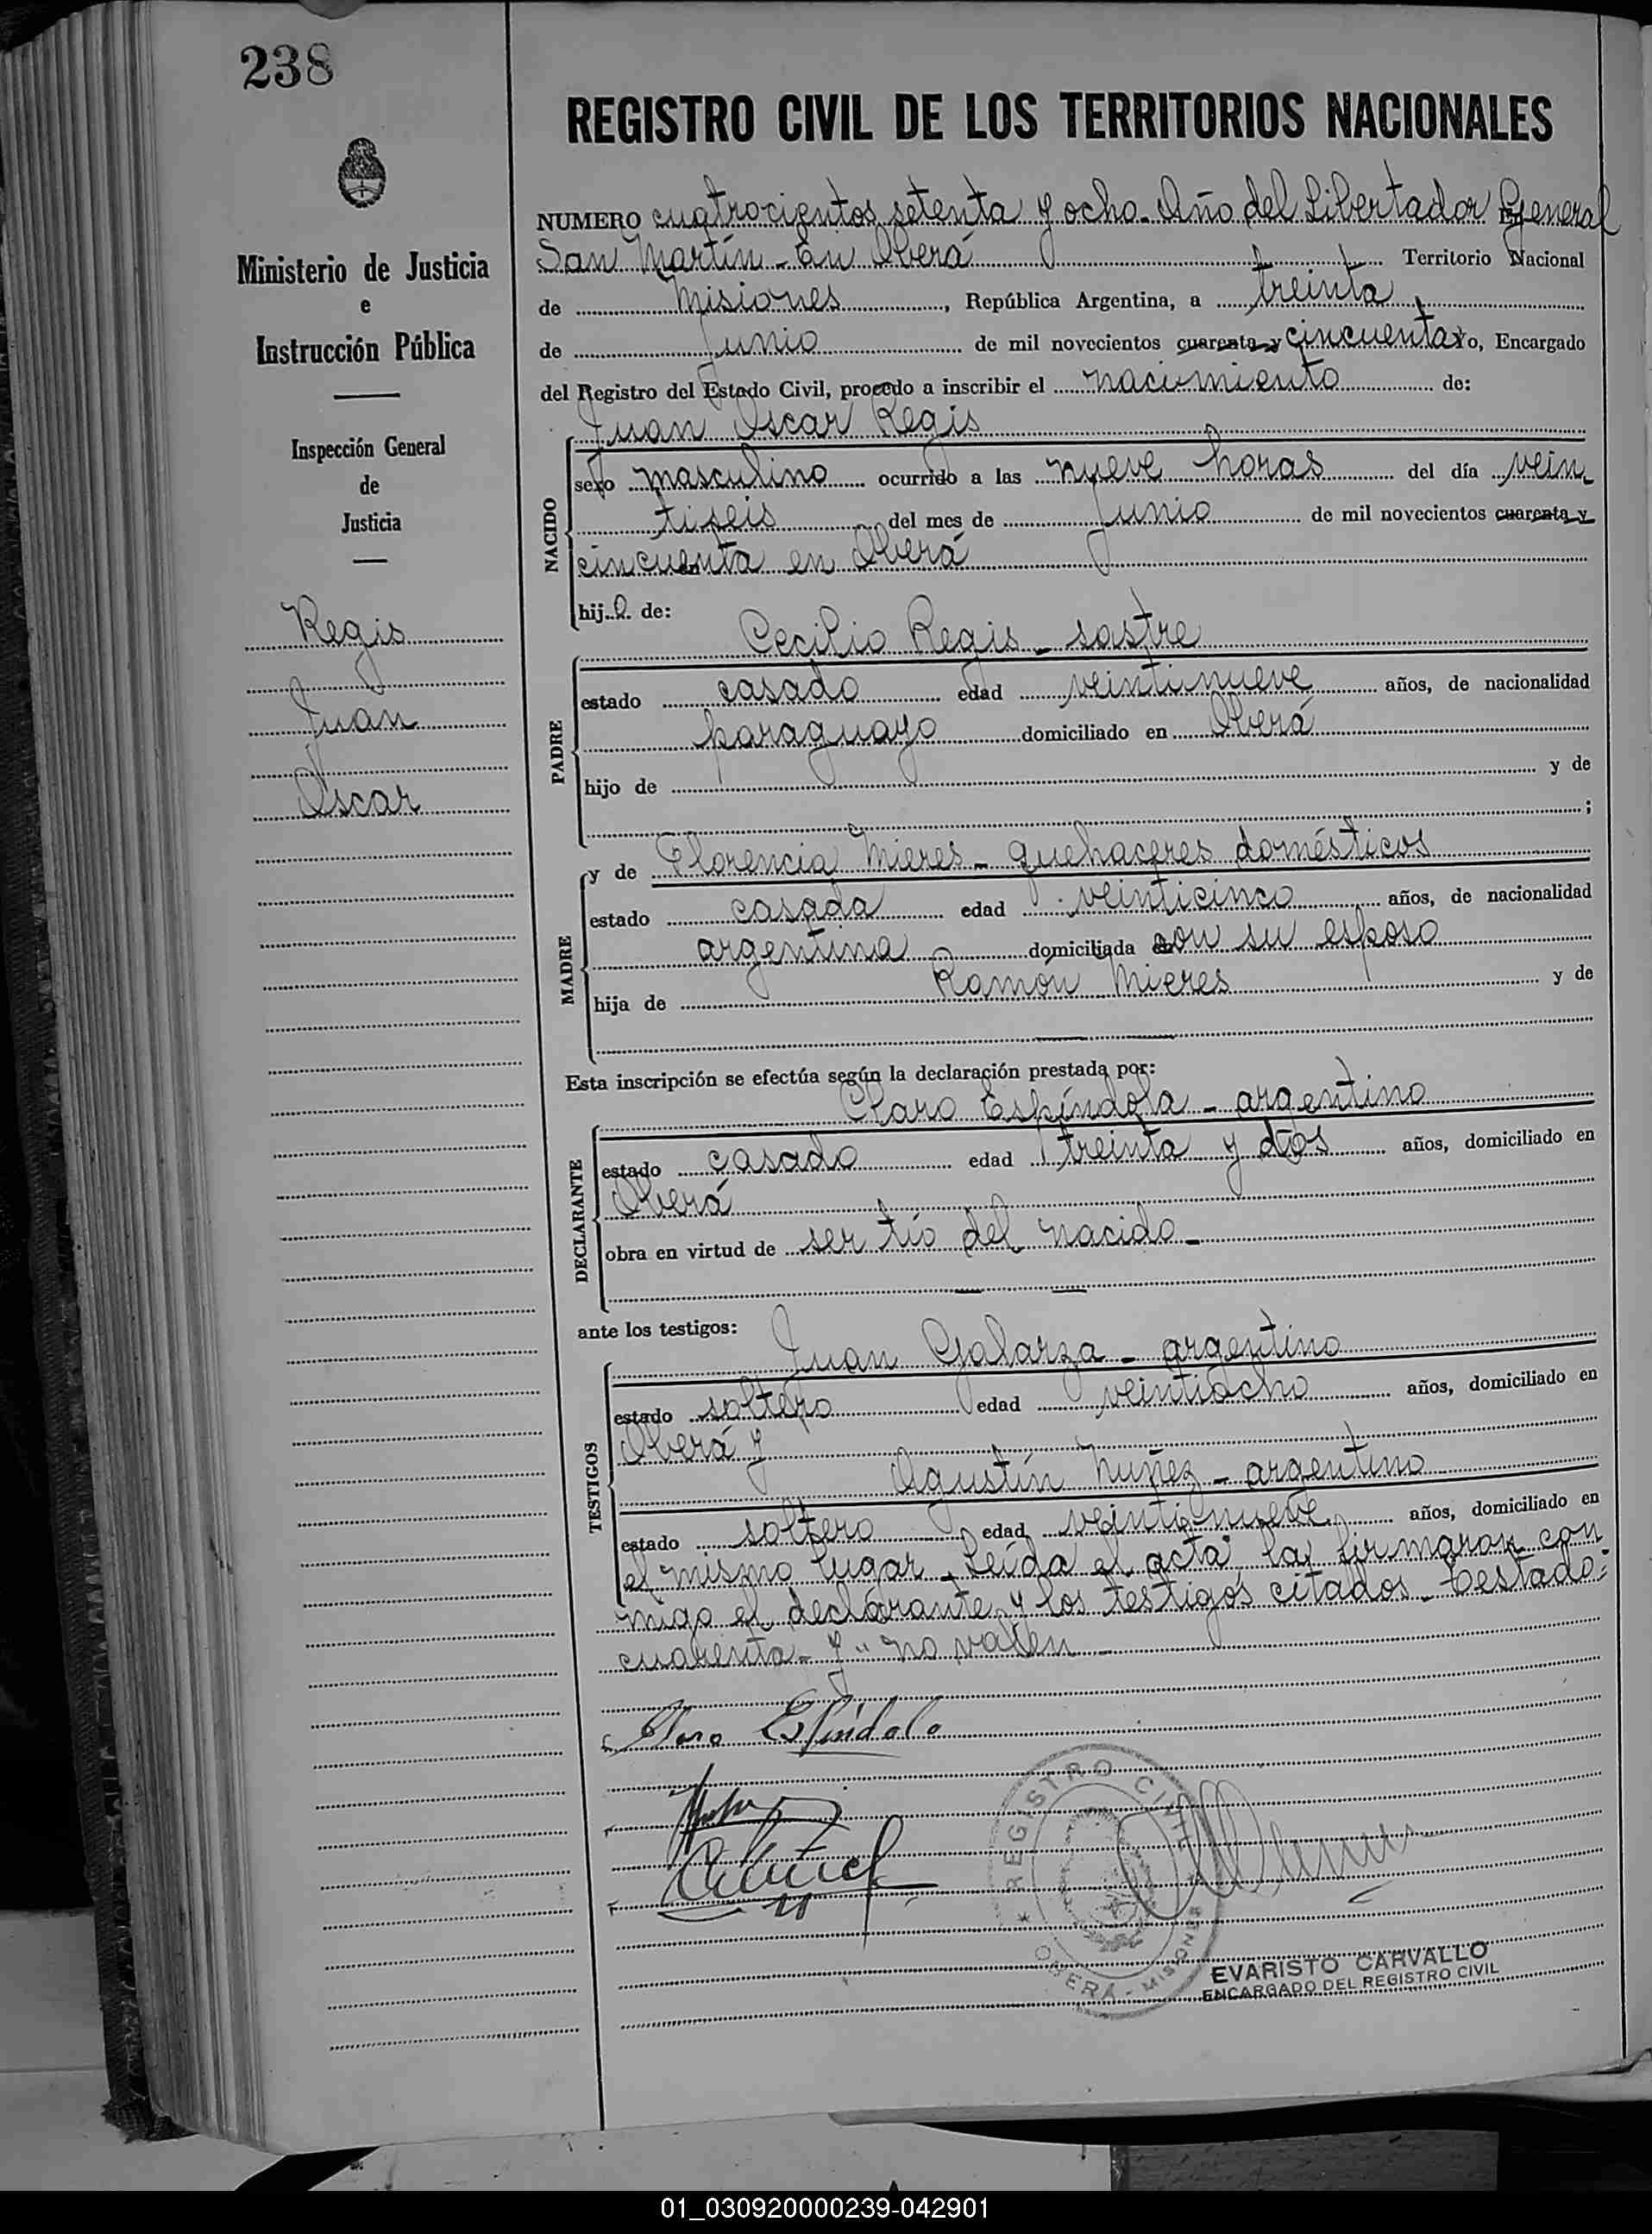 238
REGISTRO CIVIL DE LOS TERRITORIOS NACIONALES
Ministerio de Justicia
e
Instrucción Pública
Inspección General
de
Justicia
Regis
Juan
Oscar
NUMERO cuatrocientos setenta y ocho. Año del Libertador General
San Martín - En Oberá Territorio Nacional
de Misiones, República Argentina, a treinta
de Junio de mil novecientos cuarenta y cincuenta yo, Encargado
del Registro del Estado Civil, procedo a inscribir el nacimiento de:
Juan Oscar Regis
NACIDO
sexo masculino ocurrido a las nueve horas del día vein
tiseis del mes de Junio de mil novecientos cuarenta y
cincuenta en Oberá
hijo de:
Cecilio Regis - sastre
PADRE
estado casado edad veintinueve años, de nacionalidad
paraguayo domiciliado en Oberá
hijo de y de
;
y de Florencia Mieres - quehaceres domésticos
MADRE
estado casada edad veinticinco años, de nacionalidad
argentina domiciliada con su esposo
hija de Ramón Mieres y de
Esta inscripción se efectúa según la declaración prestada por:
Claro Espíndola - argentino
DECLARANTE
estado casado edad treinta y dos años, domiciliado en
Oberá
obra en virtud de ser tío del nacido -
ante los testigos:
Juan Galarza - argentino
TESTIGOS
estado soltero edad veintiocho años, domiciliado en
Oberá y
Agustín Nuñez - argentino
estado soltero edad veintinueve años, domiciliado en
el mismo lugar. Leída el acta la firmaron con
migo el declarante y los testigos citados - Testado:
cuarenta - y " no valen -
Claro Espíndola
REGISTRO CIVIL
OBERÁ - MISIONES
EVARISTO CARVALLO
ENCARGADO DEL REGISTRO CIVIL
01_030920000239-042901